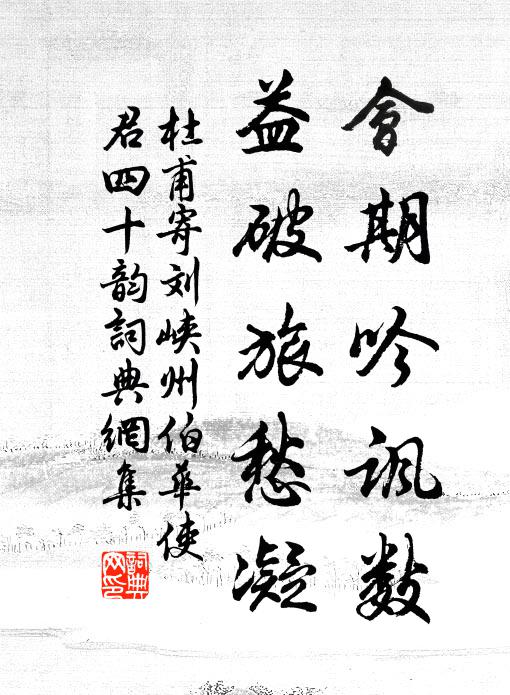 會期吟諷數
益破旅愁凝
杜甫寄刘峽州伯華使
君四十韵詞典網集
詞典網印